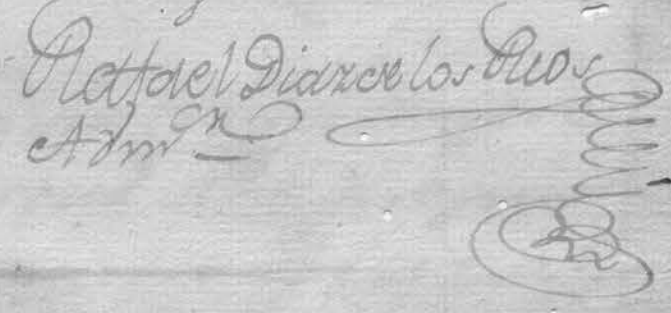 Rafael Diaz de los Rios
Admn.